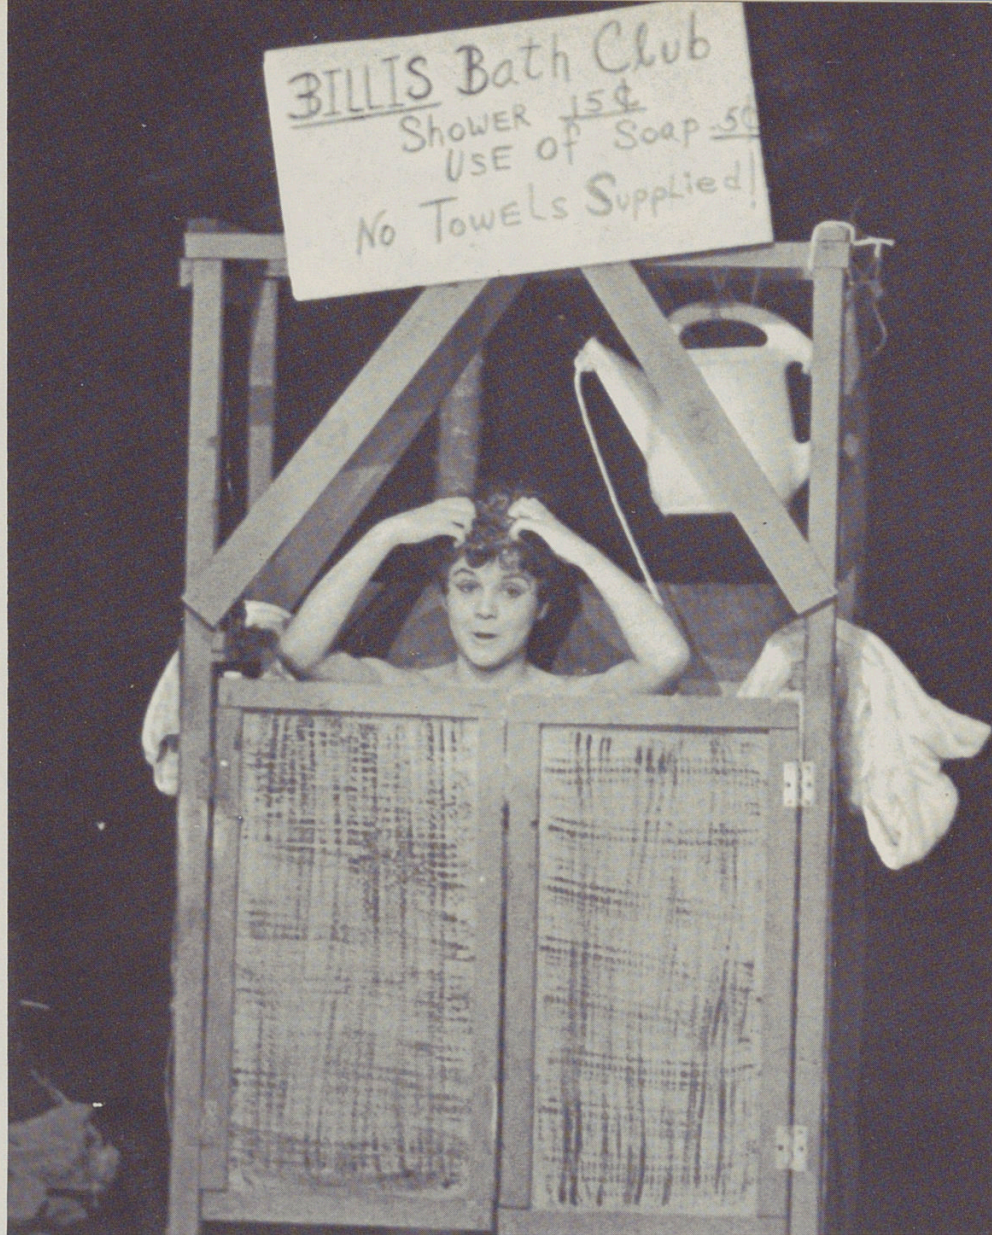 BILLIS Bath Club
SHOWER 15¢
USE of Soap .5¢
No TOWELS Supplied!